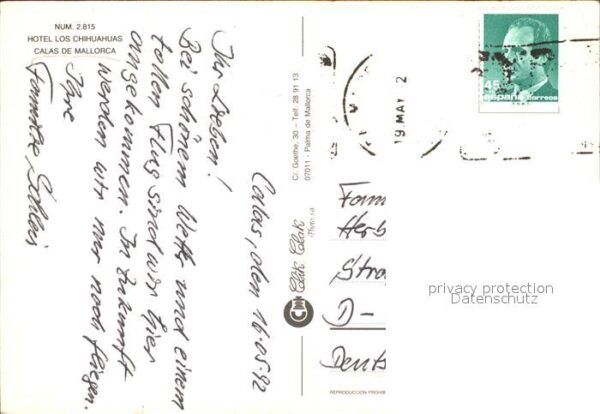 NUM. 2.815
HOTEL LOS CHIHUAHUAS
CALAS DE MALLORCA
Calas, den 16.05.92
Ihr Lieben!
Bei schönem Wetter und einem
tollen Flug sind wir hier
angekommen. In Zukunft
werden wir nur noch fliegen.
Ihre
Familie
C/. Goethe, 30 - Telf. 28 91 13
07011 - Palma de Mallorca
Clak Clak
REPRODUCCION PROHIB
45
ESPAÑA correos
19 MAY 2
Fam
Herb
Stra
D-
Deuts
privacy protection
Datenschutz